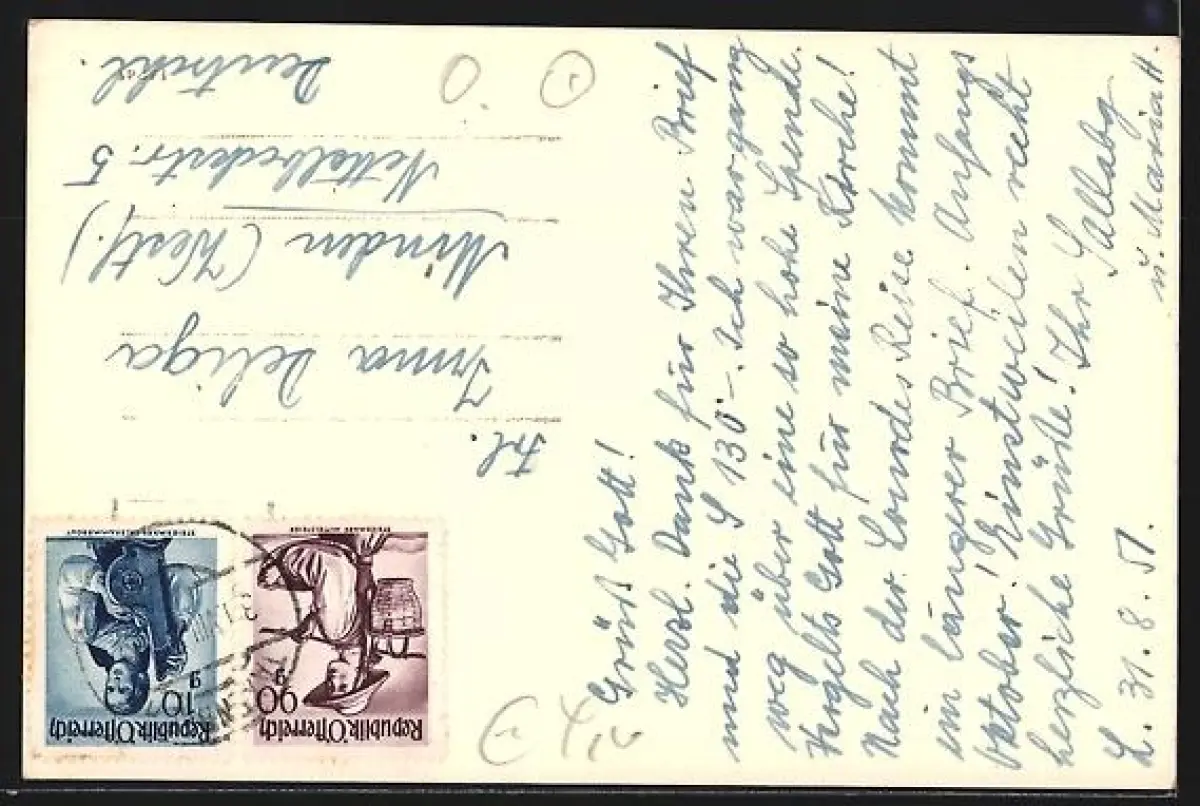 Grüß Gott!
Herzl. Dank für Ihren Brief
und die S 130.-. Ich war ganz
weg über eine so hohe Spende.
Vergelts Gott für meine Kirche!
Nach der Lourdes Reise kommt
ein längerer Brief. Anfangs
Oktober! Einstweilen recht
herzliche Grüße! Ihr
L. 31. 8. 51. u. Maria H.
Frl.
Irma Deliga
Minden (Westf.)
Nettelbeckstr. 5
Deutschl.
Republik Österreich
90 g
Republik Österreich
10 g